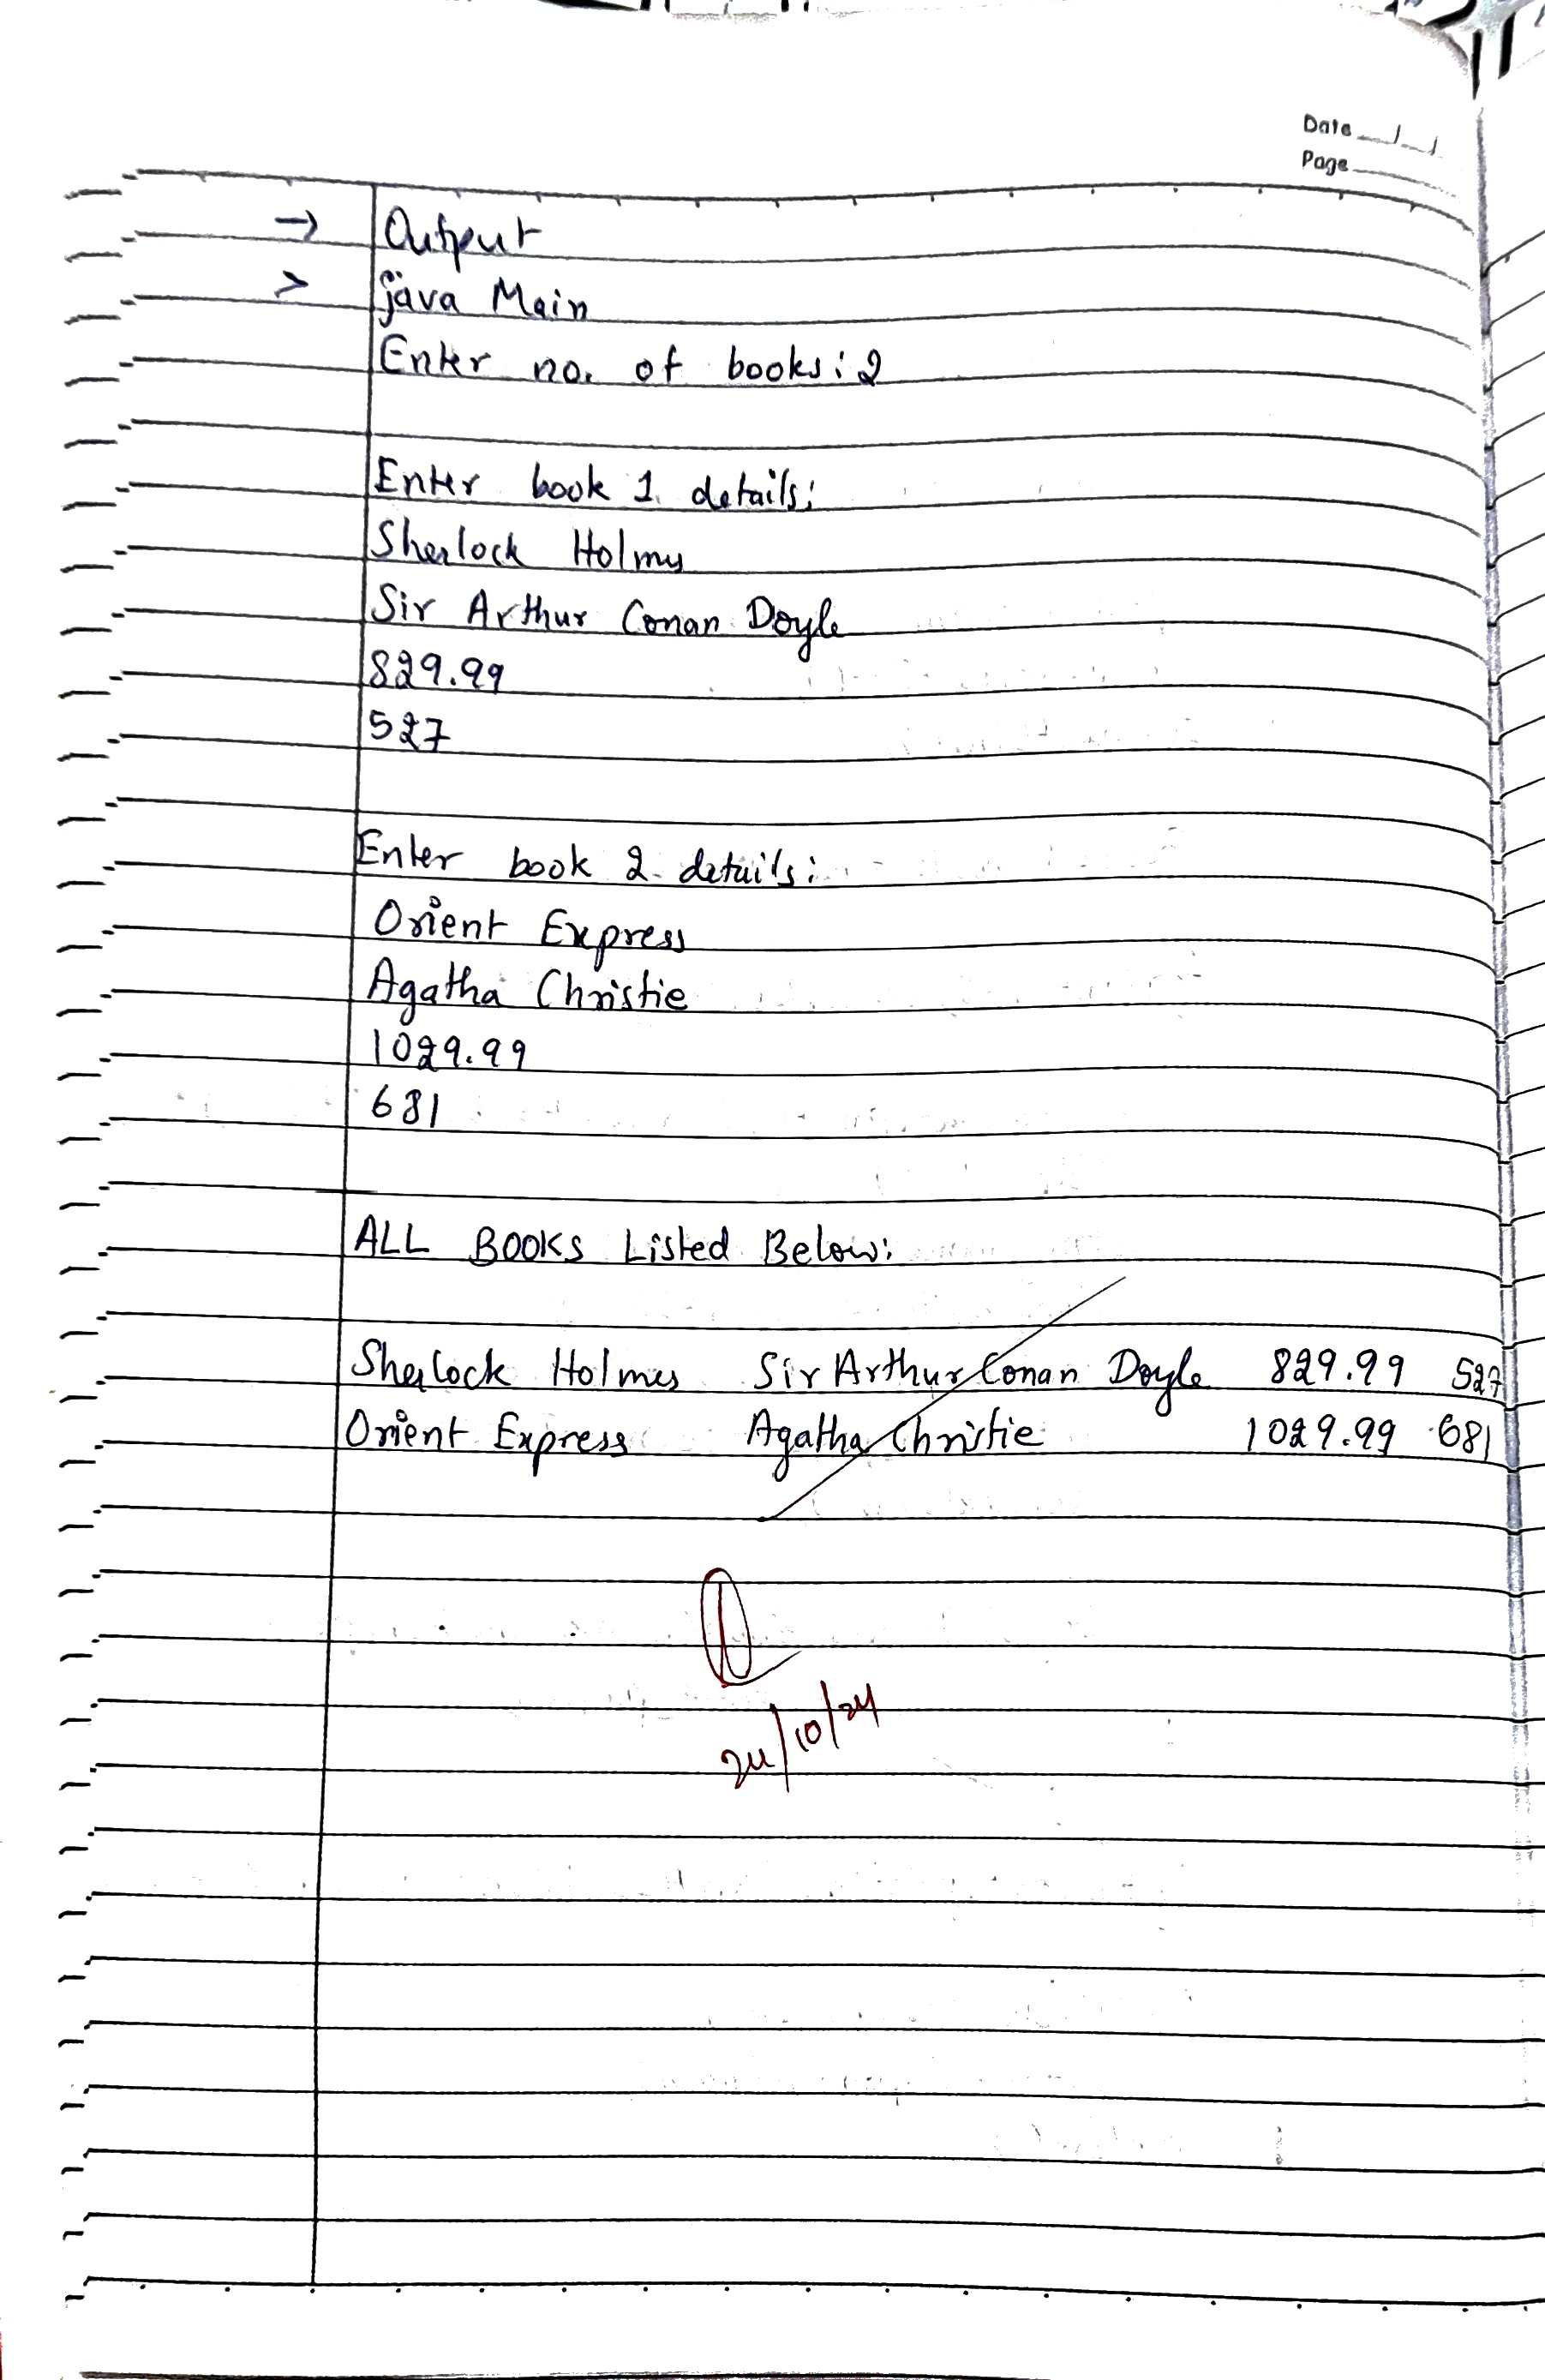 Date
Page
→ Output
> java Main
Enter no. of books: 2
Enter book 1 details:
Sherlock Holmes
Sir Arthur Conan Doyle
829.99
527
Enter book 2 details:
Orient Express
Agatha Christie
1029.99
681
ALL BOOKS Listed Below:
Sherlock Holmes Sir Arthur Conan Doyle 829.99 527
Orient Express Agatha Christie 1029.99 681
24/10/24